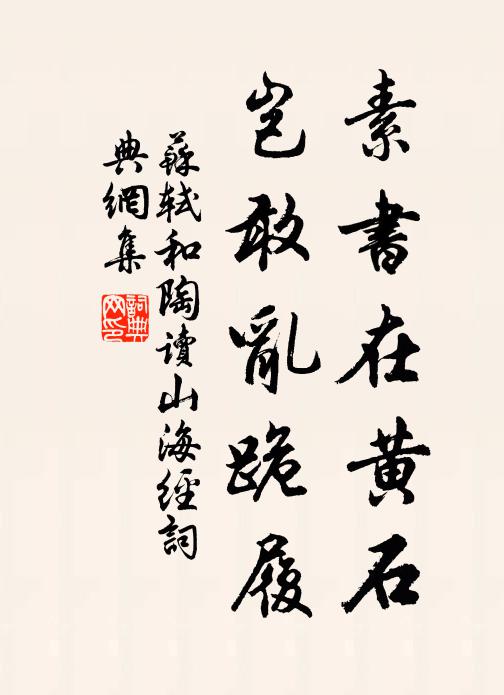 素書在黃石
豈敢亂跪履
蘇軾和陶讀山海經詞
典網集
詞典網印